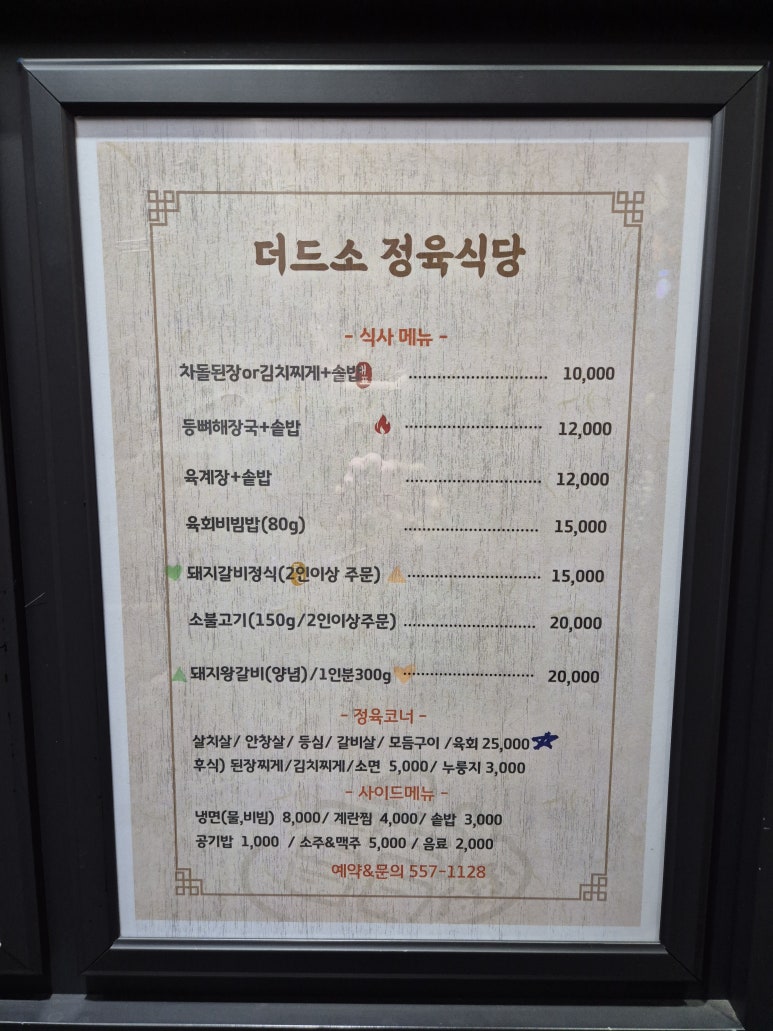 더드소 정육식당
- 식사 메뉴 -
차돌된장or김치찌게+솥밥 10,000
등뼈해장국+솥밥 12,000
육계장+솥밥 12,000
육회비빔밥(80g) 15,000
돼지갈비정식(2인이상 주문) 15,000
소불고기(150g/2인이상주문) 20,000
돼지왕갈비(양념)/1인분300g 20,000
- 정육코너 -
살치살/ 안창살/ 등심/ 갈비살/ 모듬구이 /육회 25,000
후식) 된장찌게/김치찌게/소면 5,000/ 누룽지 3,000
- 사이드메뉴 -
냉면(물,비빔) 8,000/ 계란찜 4,000/ 솥밥 3,000
공기밥 1,000 / 소주&맥주 5,000 / 음료 2,000
예약&문의 557-1128